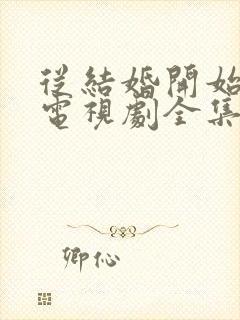 從結婚開始
電視劇全集
卿伈